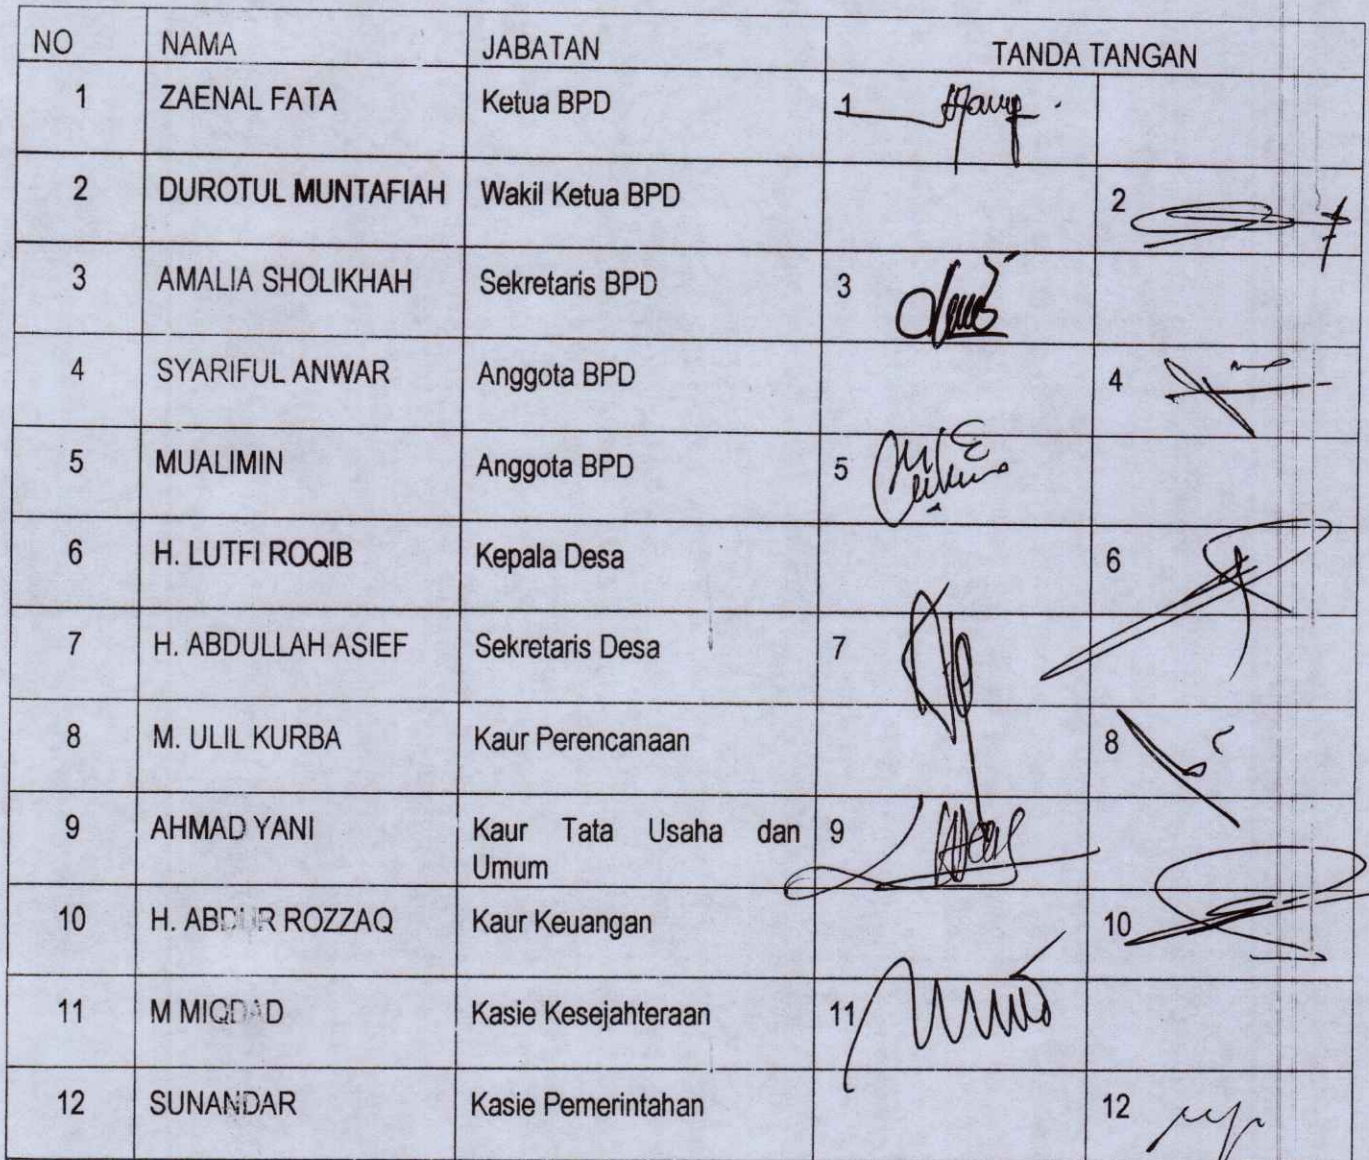 NO NAMA JABATAN TANDA TANGAN
1 ZAENAL FATA Ketua BPD 1
2 DUROTUL MUNTAFIAH Wakil Ketua BPD 2
3 AMALIA SHOLIKHAH Sekretaris BPD 3
4 SYARIFUL ANWAR Anggota BPD 4
5 MUALIMIN Anggota BPD 5
6 H. LUTFI ROQIB Kepala Desa 6
7 H. ABDULLAH ASIEF Sekretaris Desa 7
8 M. ULIL KURBA Kaur Perencanaan 8
9 AHMAD YANI Kaur Tata Usaha dan 9
Umum
10 H. ABDUR ROZZAQ Kaur Keuangan 10
11 M MIQDAD Kasie Kesejahteraan 11
12 SUNANDAR Kasie Pemerintahan 12